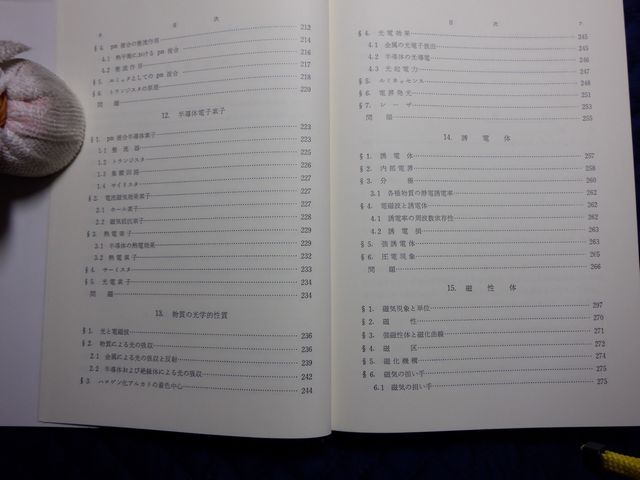 目次
§4. pn接合の整流作用 212
4.1 熱平衡における pn 接合 214
4.2 整流作用 216
§5. エミッタとしての pn 接合 217
§6. トランジスタの原理 218
問題 220
12. 半導体電子素子
§1. pn接合半導体素子 223
1.1 整流器 223
1.2 トランジスタ 225
1.3 集積回路 226
1.4 サイリスタ 227
§2. 電流磁気効果素子 227
2.1 ホール素子 227
2.2 磁気抵抗素子 228
§3. 熱電素子 229
3.1 半導体の熱電効果 229
3.2 熱電素子 232
§4. サーミスタ 233
§5. 光電素子 234
問題 234
13. 物質の光学的性質
§1. 光と電磁波 236
§2. 物質による光の吸収 236
2.1 金属による光の吸収と反射 239
2.2 半導体および絶縁体による光の吸収 242
§3. ハロゲン化アルカリの着色中心 244
目次 7
§4. 光電効果 245
4.1 金属の光電子放出 245
4.2 半導体の光導電 246
4.3 光起電力 247
§5. ルミネッセンス 248
§6. 電界発光 251
§7. レーザ 253
問題 255
14. 誘電体
§1. 誘電体 257
§2. 内部電界 258
§3. 分極 260
3.1 各種物質の静電誘電率 262
§4. 電磁波と誘電体 262
4.1 誘電率の周波数依存性 262
4.2 誘電損 263
§5. 強誘電体 263
§6. 圧電現象 265
問題 266
15. 磁性体
§1. 磁気現象と単位 297
§2. 磁性 270
§3. 強磁性体と磁化曲線 271
§4. 磁区 272
§5. 磁化機構 274
§6. 磁気の担い手 275
6.1 磁気の担い手 275